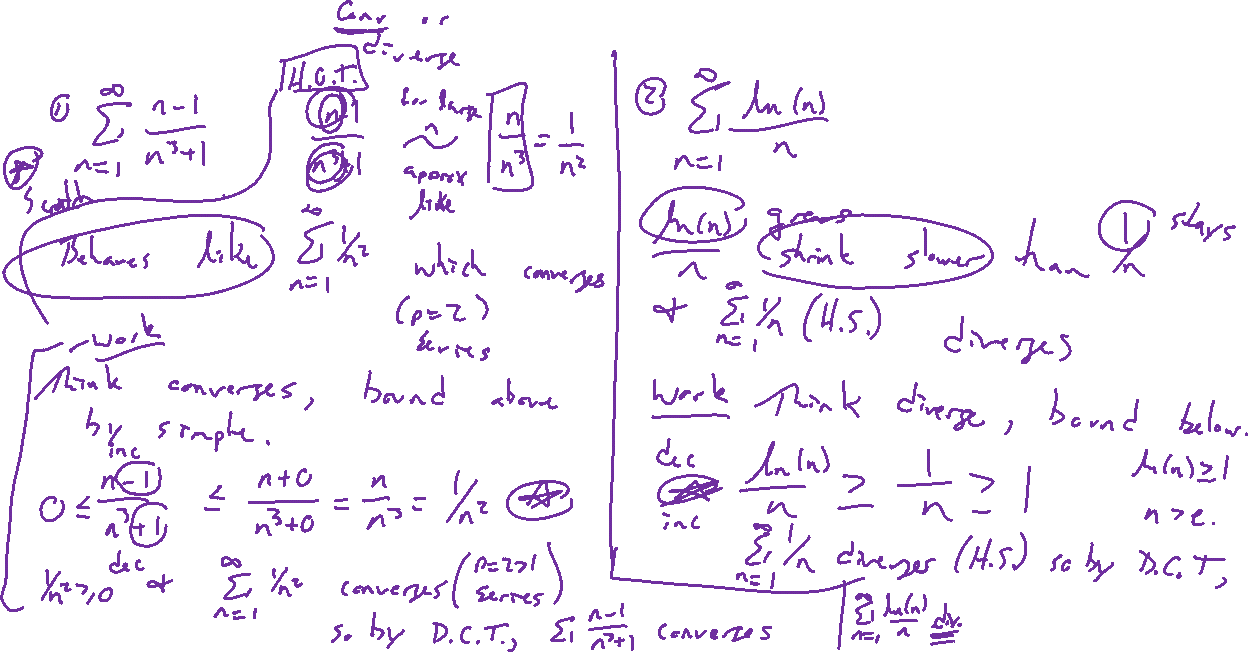 Conv or
diverge
① ∞∑n=1 (n-1)/(n³+1)
H.O.T.
(n-1)/(n³+1) for large n ~ approx like n/n³ = 1/n²
Behaves like ∞∑n=1 1/n² which converges
(p=2)
series
work
Think converges, bound above
by simple.
inc
0 ≤ (n-1)/(n³+1) ≤ (n+0)/(n³+0) = n/n³ = 1/n²
dec
1/n² ≥ 0 & ∞∑n=1 1/n² converges (p=2>1 series)
so by D.C.T., ∑ (n-1)/(n³+1) converges
② ∞∑n=1 ln(n)/n
ln(n)/n grows
shrink slower than 1/n stays
& ∞∑n=1 1/n (H.S.) diverges
Work Think diverge, bound below.
dec
inc
ln(n)/n ≥ 1/n ≥ 1
ln(n) ≥ 1
n > e.
∞∑n=1 1/n diverges (H.S.) so by D.C.T,
∞∑n=1 ln(n)/n div.